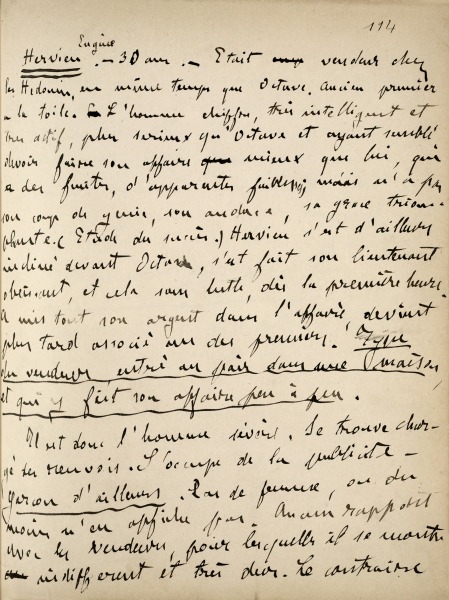 114
Eugène
Hervieu — 30 ans. — Etait vendeur chez
les Hédouin, en même temps que Octave. Ancien premier
à la toile. L'homme chiffre, très intelligent et
très actif, plus sérieux qu'Octave et ayant semblé
devoir faire son affaire mieux que lui, qui
a des fuites, d'apparentes faiblesses; mais n'a pas
son coup de génie, son audace, sa grâce triom-
phante. (Etude du succès.) Hervieu s'est d'ailleurs
incliné devant Octave, s'est fait son lieutenant
obéissant, et cela sans lutte, dès la première heure.
A mis tout son argent dans l'affaire, devient
plus tard associé un des premiers. Type
du vendeur, entré au pair dans une maison,
et qui y fait son affaire peu à peu.
Il est donc l'homme sévère. Se trouve char-
gé des renvois. S'occupe de la publicité —
Garçon d'ailleurs. Pas de femme, ou du
moins n'en affiche pas. Aucun rapport
avec les vendeurs, pour lesquelles il se montre
indifférent et très dur. Le contraire